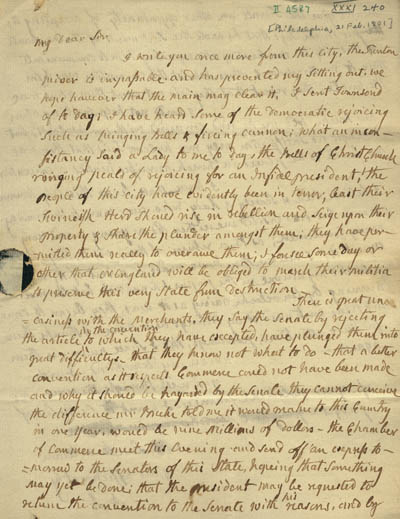 II 4587 XXXI 240
[Philadelphia, 21 Feb. 1801]
My dear Sir
I write you once more from this city, the Trenton
River is impassable and has prevented my setting out. we
hope however that the rain may clear it, I sent Townsend
of to day; I have heard some of the democratic rejoicing
such as Ringing Bells & fireing cannon; what an incon
sistancy said a Lady to me to day, the Bells of Christ Church
ringing peals of rejoicing for an Infidel president; the
people of this city have evidently been in terror, least their
Swineish Herd should rise in rebellion and seize upon their
property & share the plunder amongst them; they have per
mitted them really to overawe them; I foresee some day or
other that N England will be obliged to march their militia
to preserve this very State from destruction.
There is great una
=easiness with the Merchants, they say the Senate by rejecting
in the convention
the article to which they have excepted, have plunged them into
great difficulty that they know not what to do – that a better
convention as it respects Commerce could not have been made
and why it should be hazarded by the Senate they cannot conceive
the difference mr Breck told me it would make to this Country
in one year, would be nine Millions of dollars – the Chamber
of Commerce meet this Evening and send off an express to
morrow to the Senators of this State, hopeing that something
may yet be done; that the President may be requested to
return the convention to the Senate with his reasons, and by